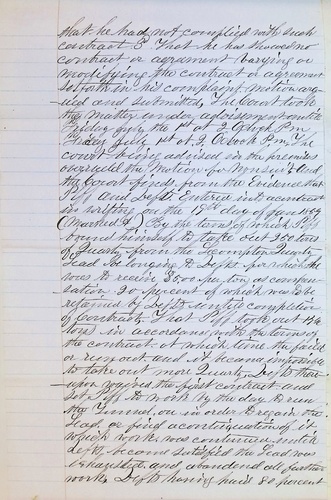 that he had not complied with such
contract & That he has showed no
contract or agreement varying or
modifying the contract or agreement
set forth in his complaint, motion arg-
ued and submitted, The Court took
the Matter under advisement until
Friday July the 1st at 2 Oclock P.m.
Friday July 1st at 2 Oclock P.m. The
court being advised in the premises
overruled the Motion for Nonsuit And
the Court finds from the Evidence that
Plff and Defts Entered into a contract
in writing on the 15th day of Jan 1859
(Marked A) By the terms of which Plff
bound himself to take out 200 tons
of Quartz from the Quartz
Lead belonging to Defts for which he
was to receive per ton as compen-
sation 20 per cent of which was to be
retained by Defts until completion
of Contract, That Plff took out
tons in accordance with the terms of
the contract at which time the
or run out and it became impossible
to take out more Quartz, Defts there-
upon waived the first contract and
set Plff to work by the day to run
the Tunnel on in order to regain the
Lead or find a continuation of it
which work was continued until
defts became satisfied the Lead was
and abandoned all further
work, Defts having paid 80 per cent